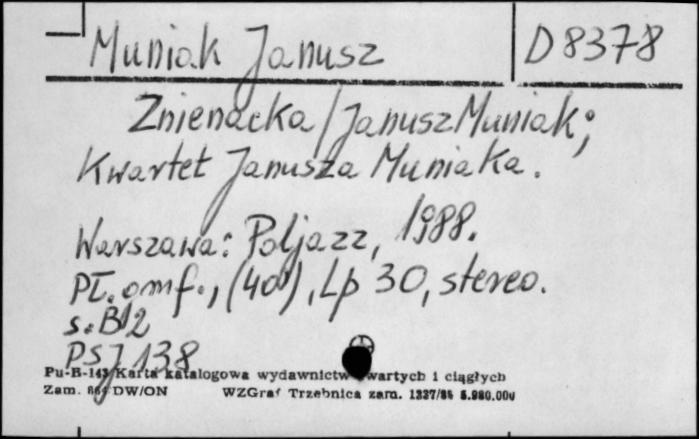 Muniak Janusz
D 8378
Znienacka / Janusz Muniak ;
Kwartet Janusza Muniaka.
Warszawa : Poljazz, 1988.
Pł. gmf., (40'), Lp 30, stereo.
s. B12
PSJ 138
Pu-B-143 Karta katalogowa wydawnictw zwartych i ciągłych
Zam. DW/ON WZGraf Trzebnica zam. 1327/86 5.980.000